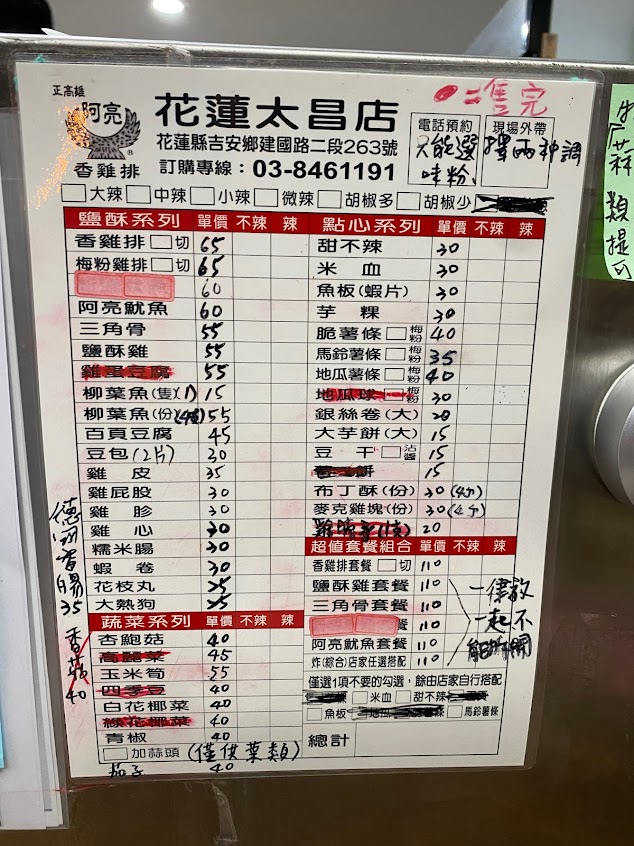 正高雄
阿亮
香雞排
花蓮太昌店
花蓮縣吉安鄉建國路二段263號
訂購專線：03-8461191
：售完
電話預約 現場外帶
只能選擇兩種調味粉
大辣 中辣 小辣 微辣 胡椒多 胡椒少
鹽酥系列 單價 不辣 辣
香雞排 切 65
梅粉雞排 切 65
60
阿亮魷魚 60
三角骨 55
鹽酥雞 55
雞蛋豆腐 55
柳葉魚(隻) 15
柳葉魚(份) 55
百頁豆腐 45
豆包(2片) 30
雞皮 35
雞屁股 30
雞胗 30
雞心 30
糯米腸 30
蝦卷 30
花枝丸 25
大熱狗 25
蔬菜系列 單價 不辣 辣
杏鮑菇 40
高麗菜 45
玉米筍 55
四季豆 40
白花椰菜 40
綠花椰菜 40
青椒 40
加蒜頭 (僅供葉類)
茄子 40
點心系列 單價 不辣 辣
甜不辣 30
米血 30
魚板(蝦片) 30
芋粿 30
脆薯條 梅粉 40
馬鈴薯條 梅粉 35
地瓜薯條 梅粉 40
地瓜球 梅粉 30
銀絲卷(大) 20
大芋餅(大) 15
豆干 沾醬 15
15
布丁酥(份) 30
麥克雞塊(份) 30
20
超值套餐組合 單價 不辣 辣
香雞排套餐 切 110
鹽酥雞套餐 110
三角骨套餐 110
餐 110
阿亮魷魚套餐 110
炸(綜合)店家任選搭配 110
一律放
一起不
能
僅選1項不要的勾選，餘由店家自行搭配
米血 甜不辣
魚板 馬鈴薯條
總計
德國香腸
35
香菇
40
蒜
類